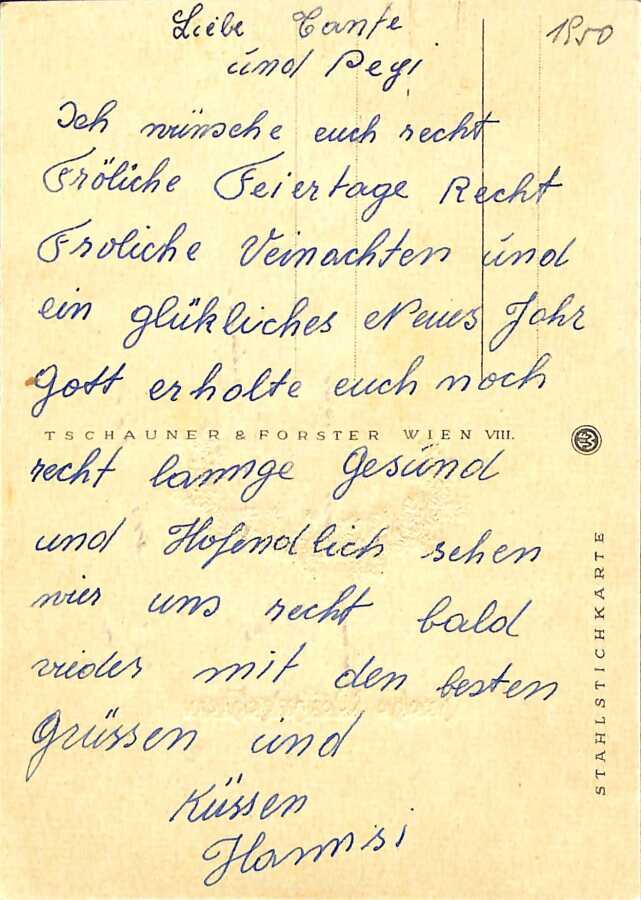 Liebe Tante
1950
und Pegi
Ich wünsche euch recht
Fröliche Feiertage Recht
Froliche Veinachten und
ein glükliches Neues Jahr
Gott erholte euch noch
TSCHAUNER & FORSTER WIEN VIII.
recht lannge Gesund
und Hofendlich sehen
wier uns recht bald
vieder mit den besten
Grüssen und
Küssen
Hannsi
STAHLSTICHKARTE